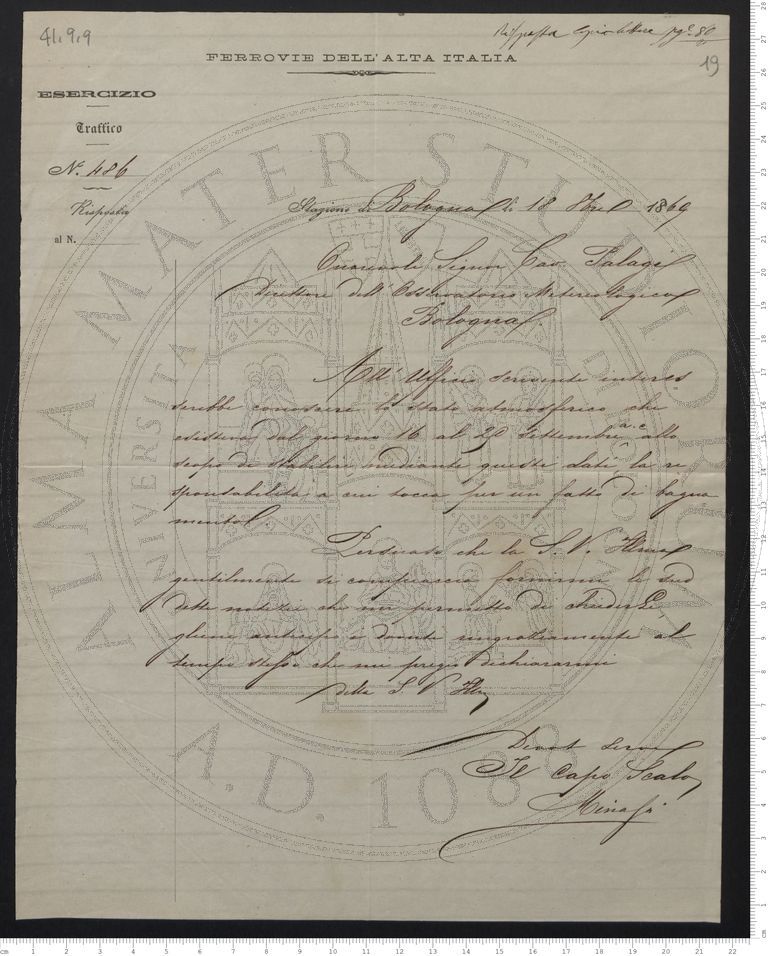 41.9.9
Risposta copialettere pag.ª 80
19
FERROVIE DELL'ALTA ITALIA
ESERCIZIO
Traffico
N.º 486
Risposta
al N.
Stazione di Bologna li 18 1869
Onorevole Signor Cav. Palagi
Direttore dell'Osservatorio Metereologico
Bologna
All' Ufficio scrivente interes
serebbe conoscere lo stato atmosferico che
esisteva dal giorno 16 al 20 Settembre a.c. allo
scopo di stabilire mediante questi dati la re
sponsabilità a cui tocca per un fatto di bagna
mento.
Persuaso che la S. V. Illma
gentilmente si compiacerà fornirmi le sud
dette notizie che mi permetto di chiederLe,
gliene anticipo i dovuti ringraziamenti al
tempo stesso che mi pregio dichiararmi
della S. V. Illma
Devot servo
Il Capo Scalo
ALMA MATER STUDIORUM
UNIVERSITA DI BOLOGNA
A.D. 1088